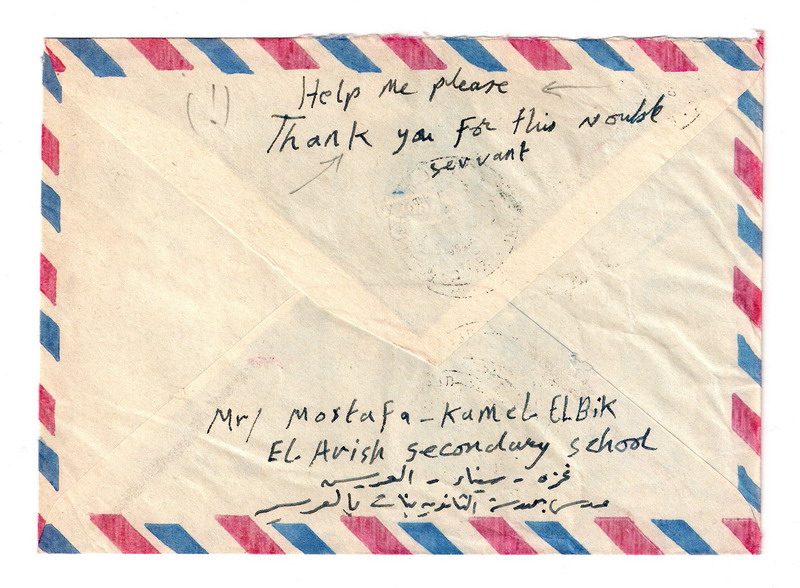 Help me please
(!)
Thank you For this nouble
servant
Mr/ Mostafa - Kamel ELBik
EL Arish secondary school
غزه - سيناء - العريش
مدرس بمدرسة الثانويه بنات بالعريش